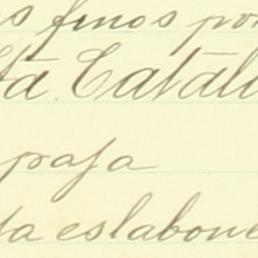 s finos por
ta Catál
paja
ja eslabone